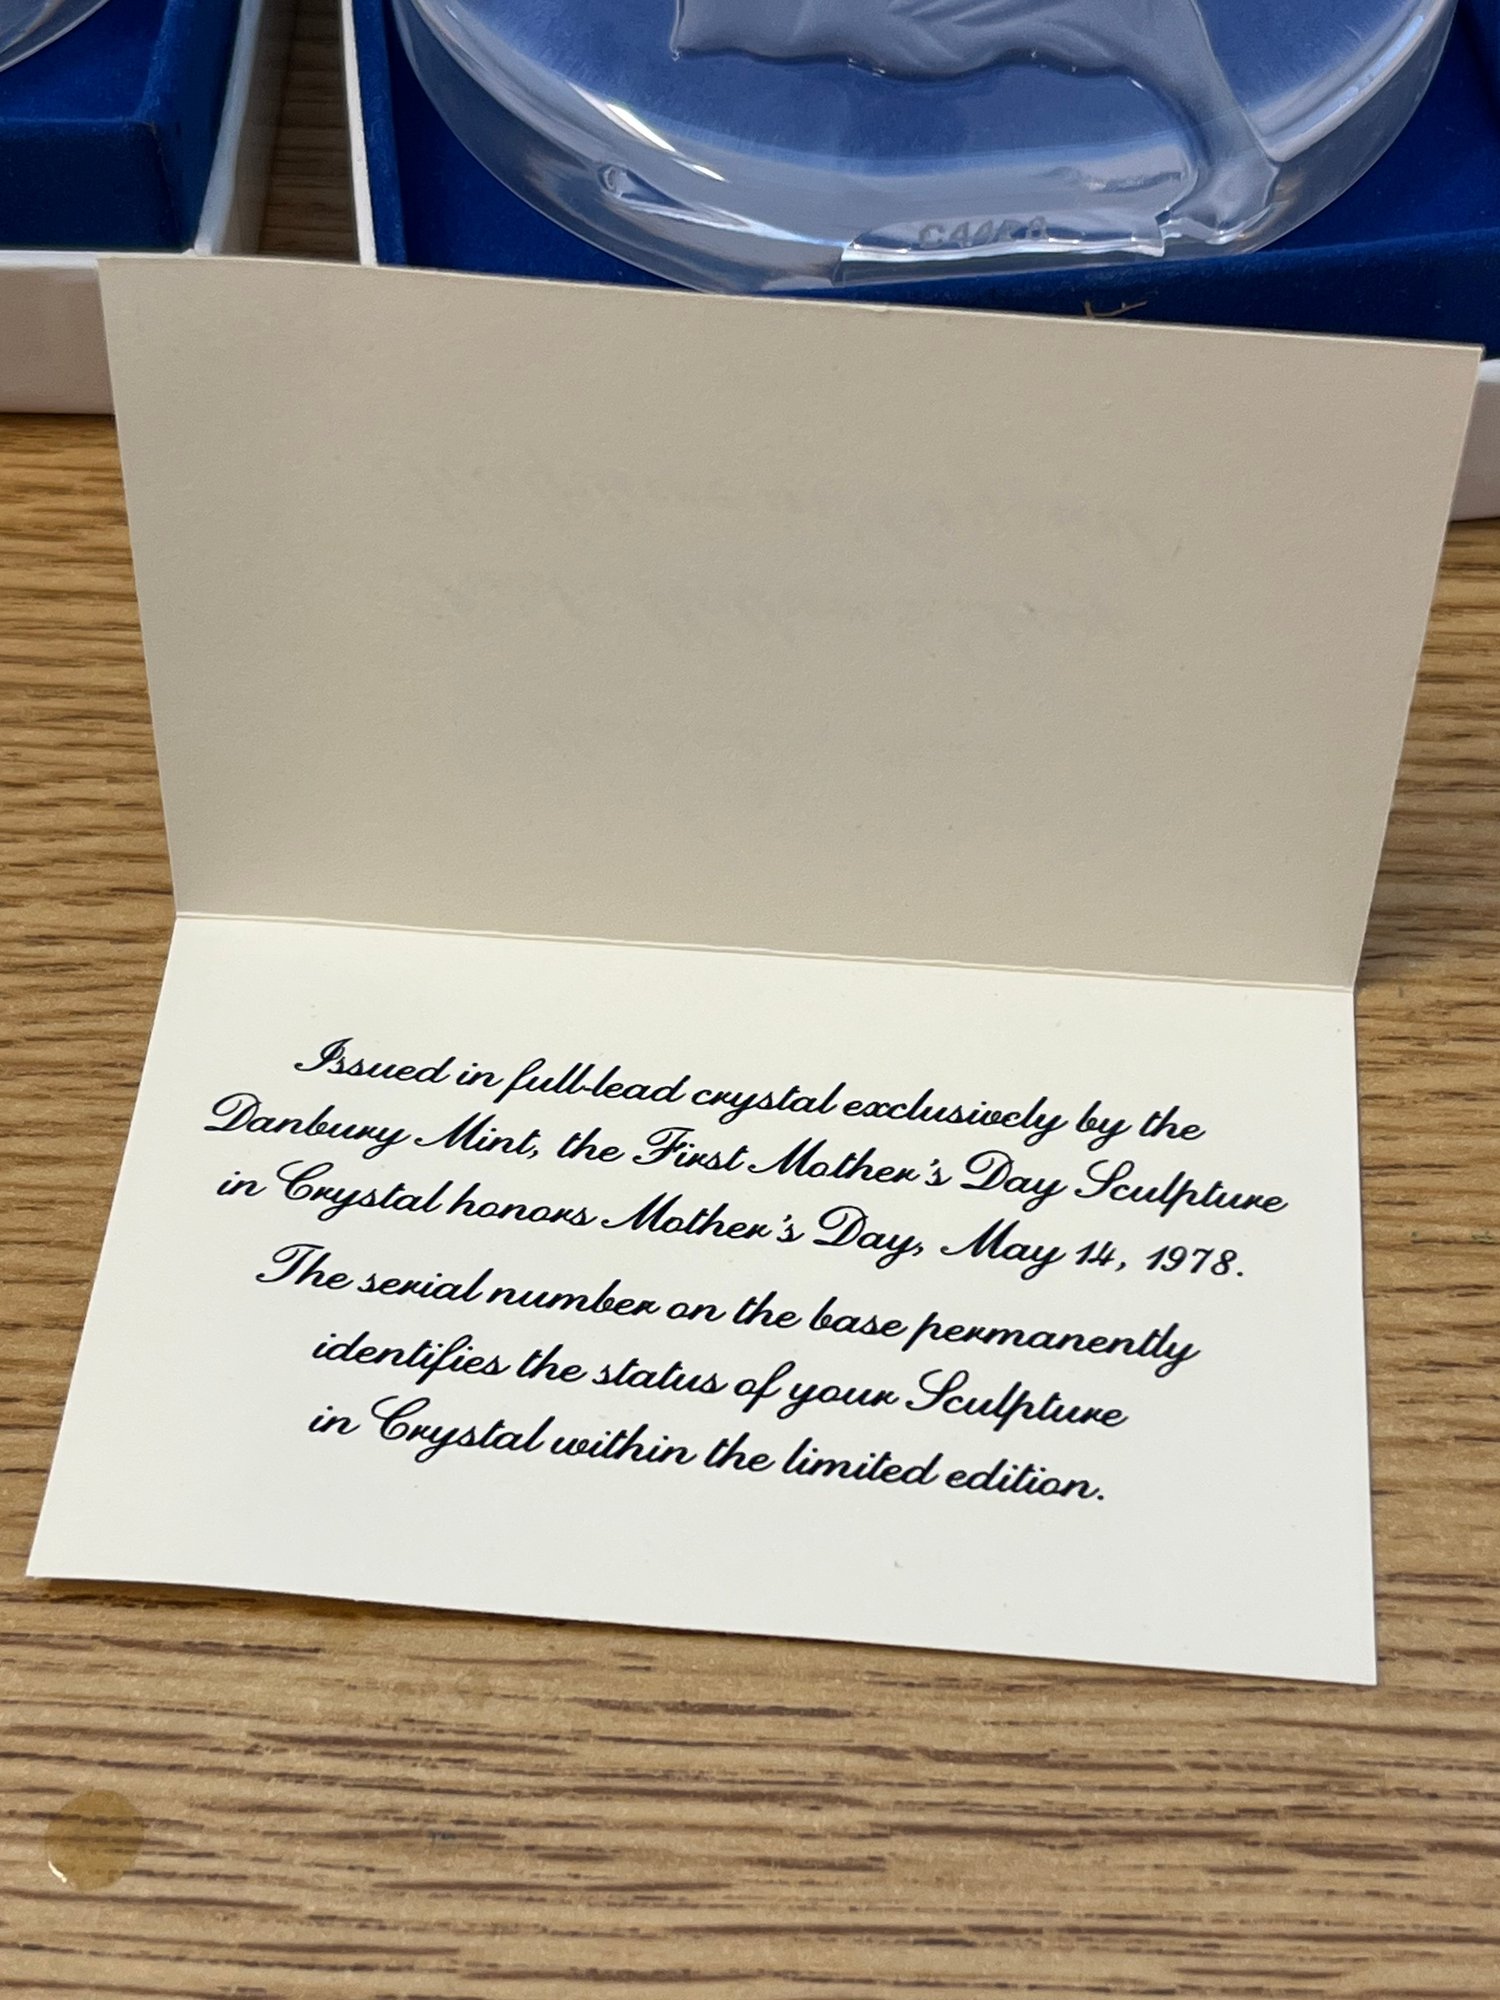 Issued in full-lead crystal exclusively by the
Danbury Mint, the First Mother's Day Sculpture
in Crystal honors Mother's Day, May 14, 1978.
The serial number on the base permanently
identifies the status of your Sculpture
in Crystal within the limited edition.